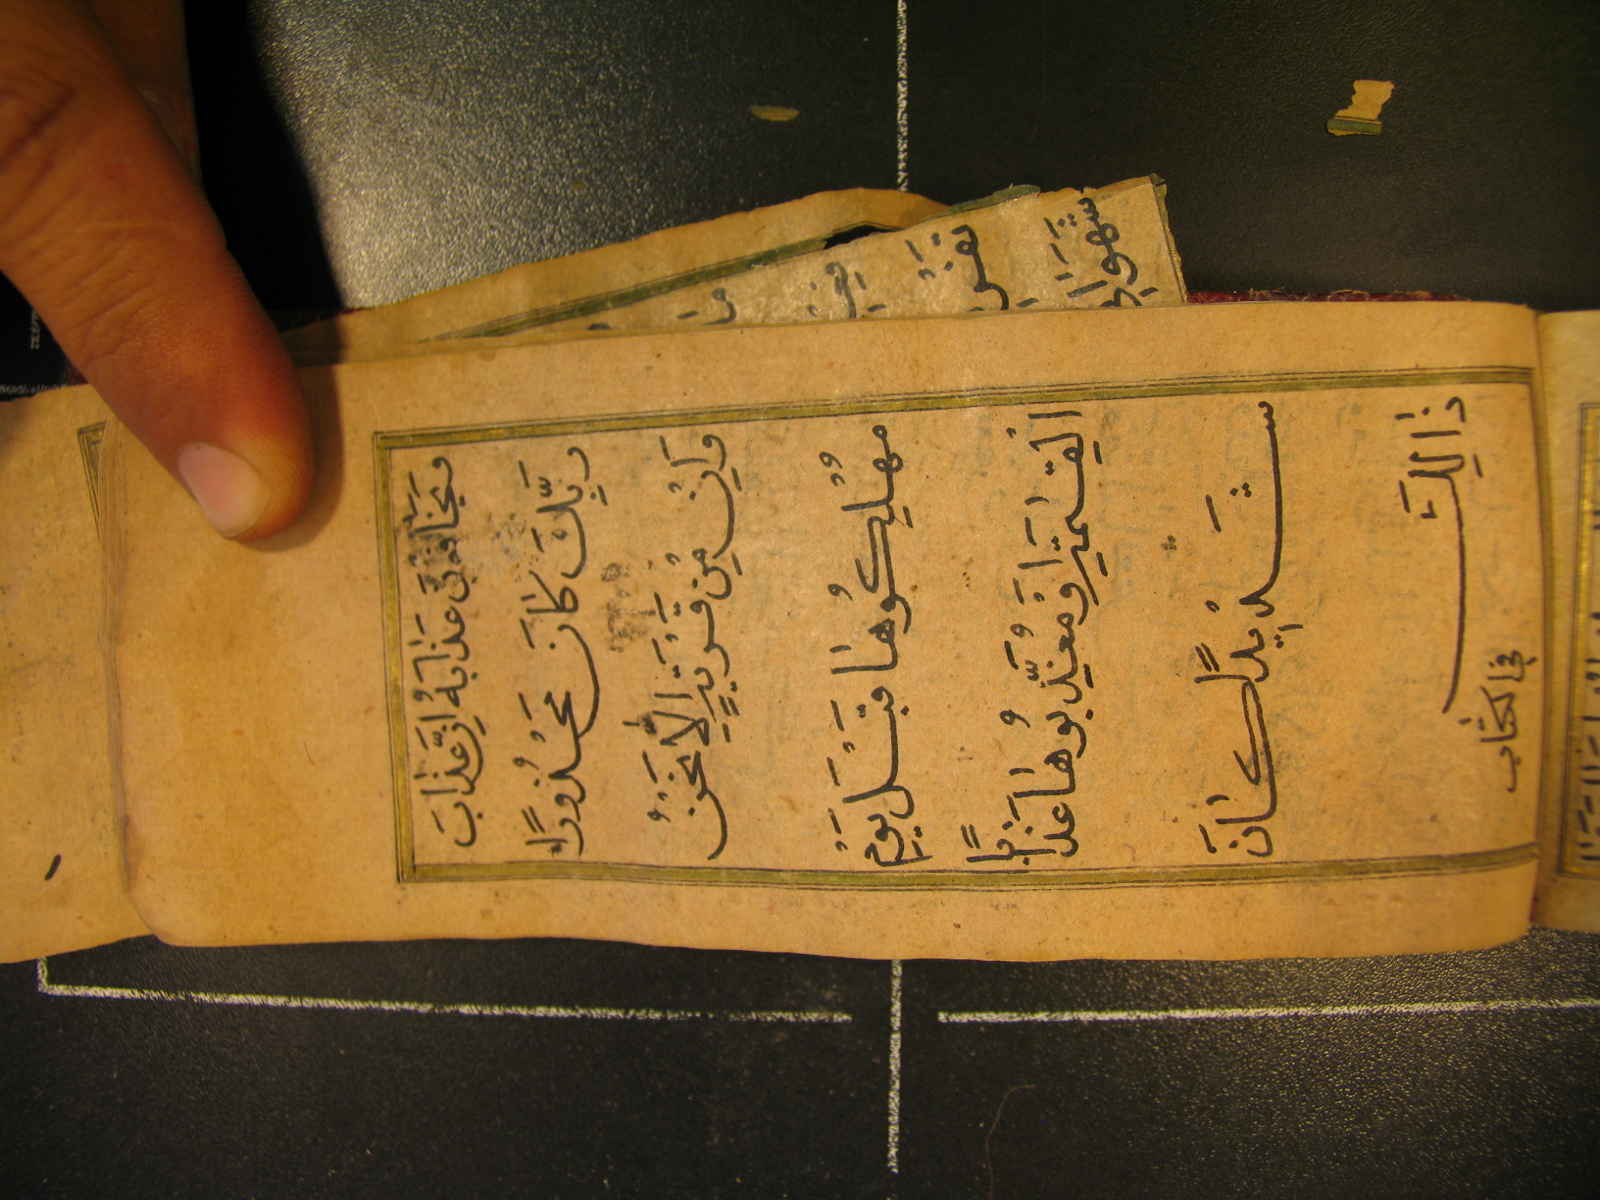 وَيَخَافُونَ عَذَابَهُ اِنَّ عَذَابَ
رَبِّكَ كَانَ مَحْذُورًا
وَاِنْ مِنْ قَرْيَةٍ اِلَّا نَحْنُ
مُهْلِكُوهَا قَبْلَ يَوْمِ
الْقِيٰمَةِ اَوْ مُعَذِّبُوهَا عَذَابًا
شَدِيدًا كَانَ
ذالِكَ
فِى الكِتَاب